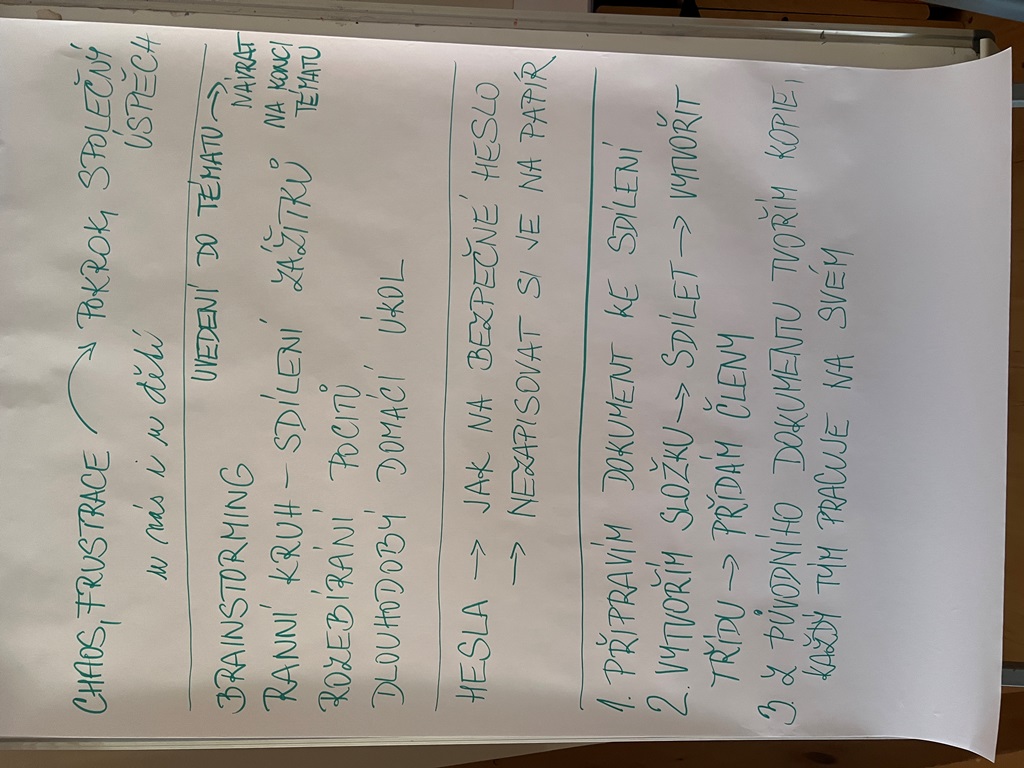 CHAOS, FRUSTRACE → POKROK, SPOLEČNÝ
ÚSPĚCH
u nás i u dětí
UVEDENÍ DO TÉMATU → NÁVRAT
NA KONCI
TÉMATU
BRAINSTORMING
RANNÍ KRUH – SDÍLENÍ ZÁŽITKŮ
ROZEBÍRÁNÍ POCITŮ
DLOUHODOBÝ DOMÁCÍ ÚKOL
HESLA → JAK NA BEZPEČNÉ HESLO
→ NEZAPISOVAT SI JE NA PAPÍR
1. PŘIPRAVÍM DOKUMENT KE SDÍLENÍ
2. VYTVOŘÍM SLOŽKU → SDÍLET → VYTVOŘIT
TŘÍDU → PŘIDÁM ČLENY
3. Z PŮVODNÍHO DOKUMENTU TVOŘÍM KOPIE,
KAŽDÝ TÝM PRACUJE NA SVÉM